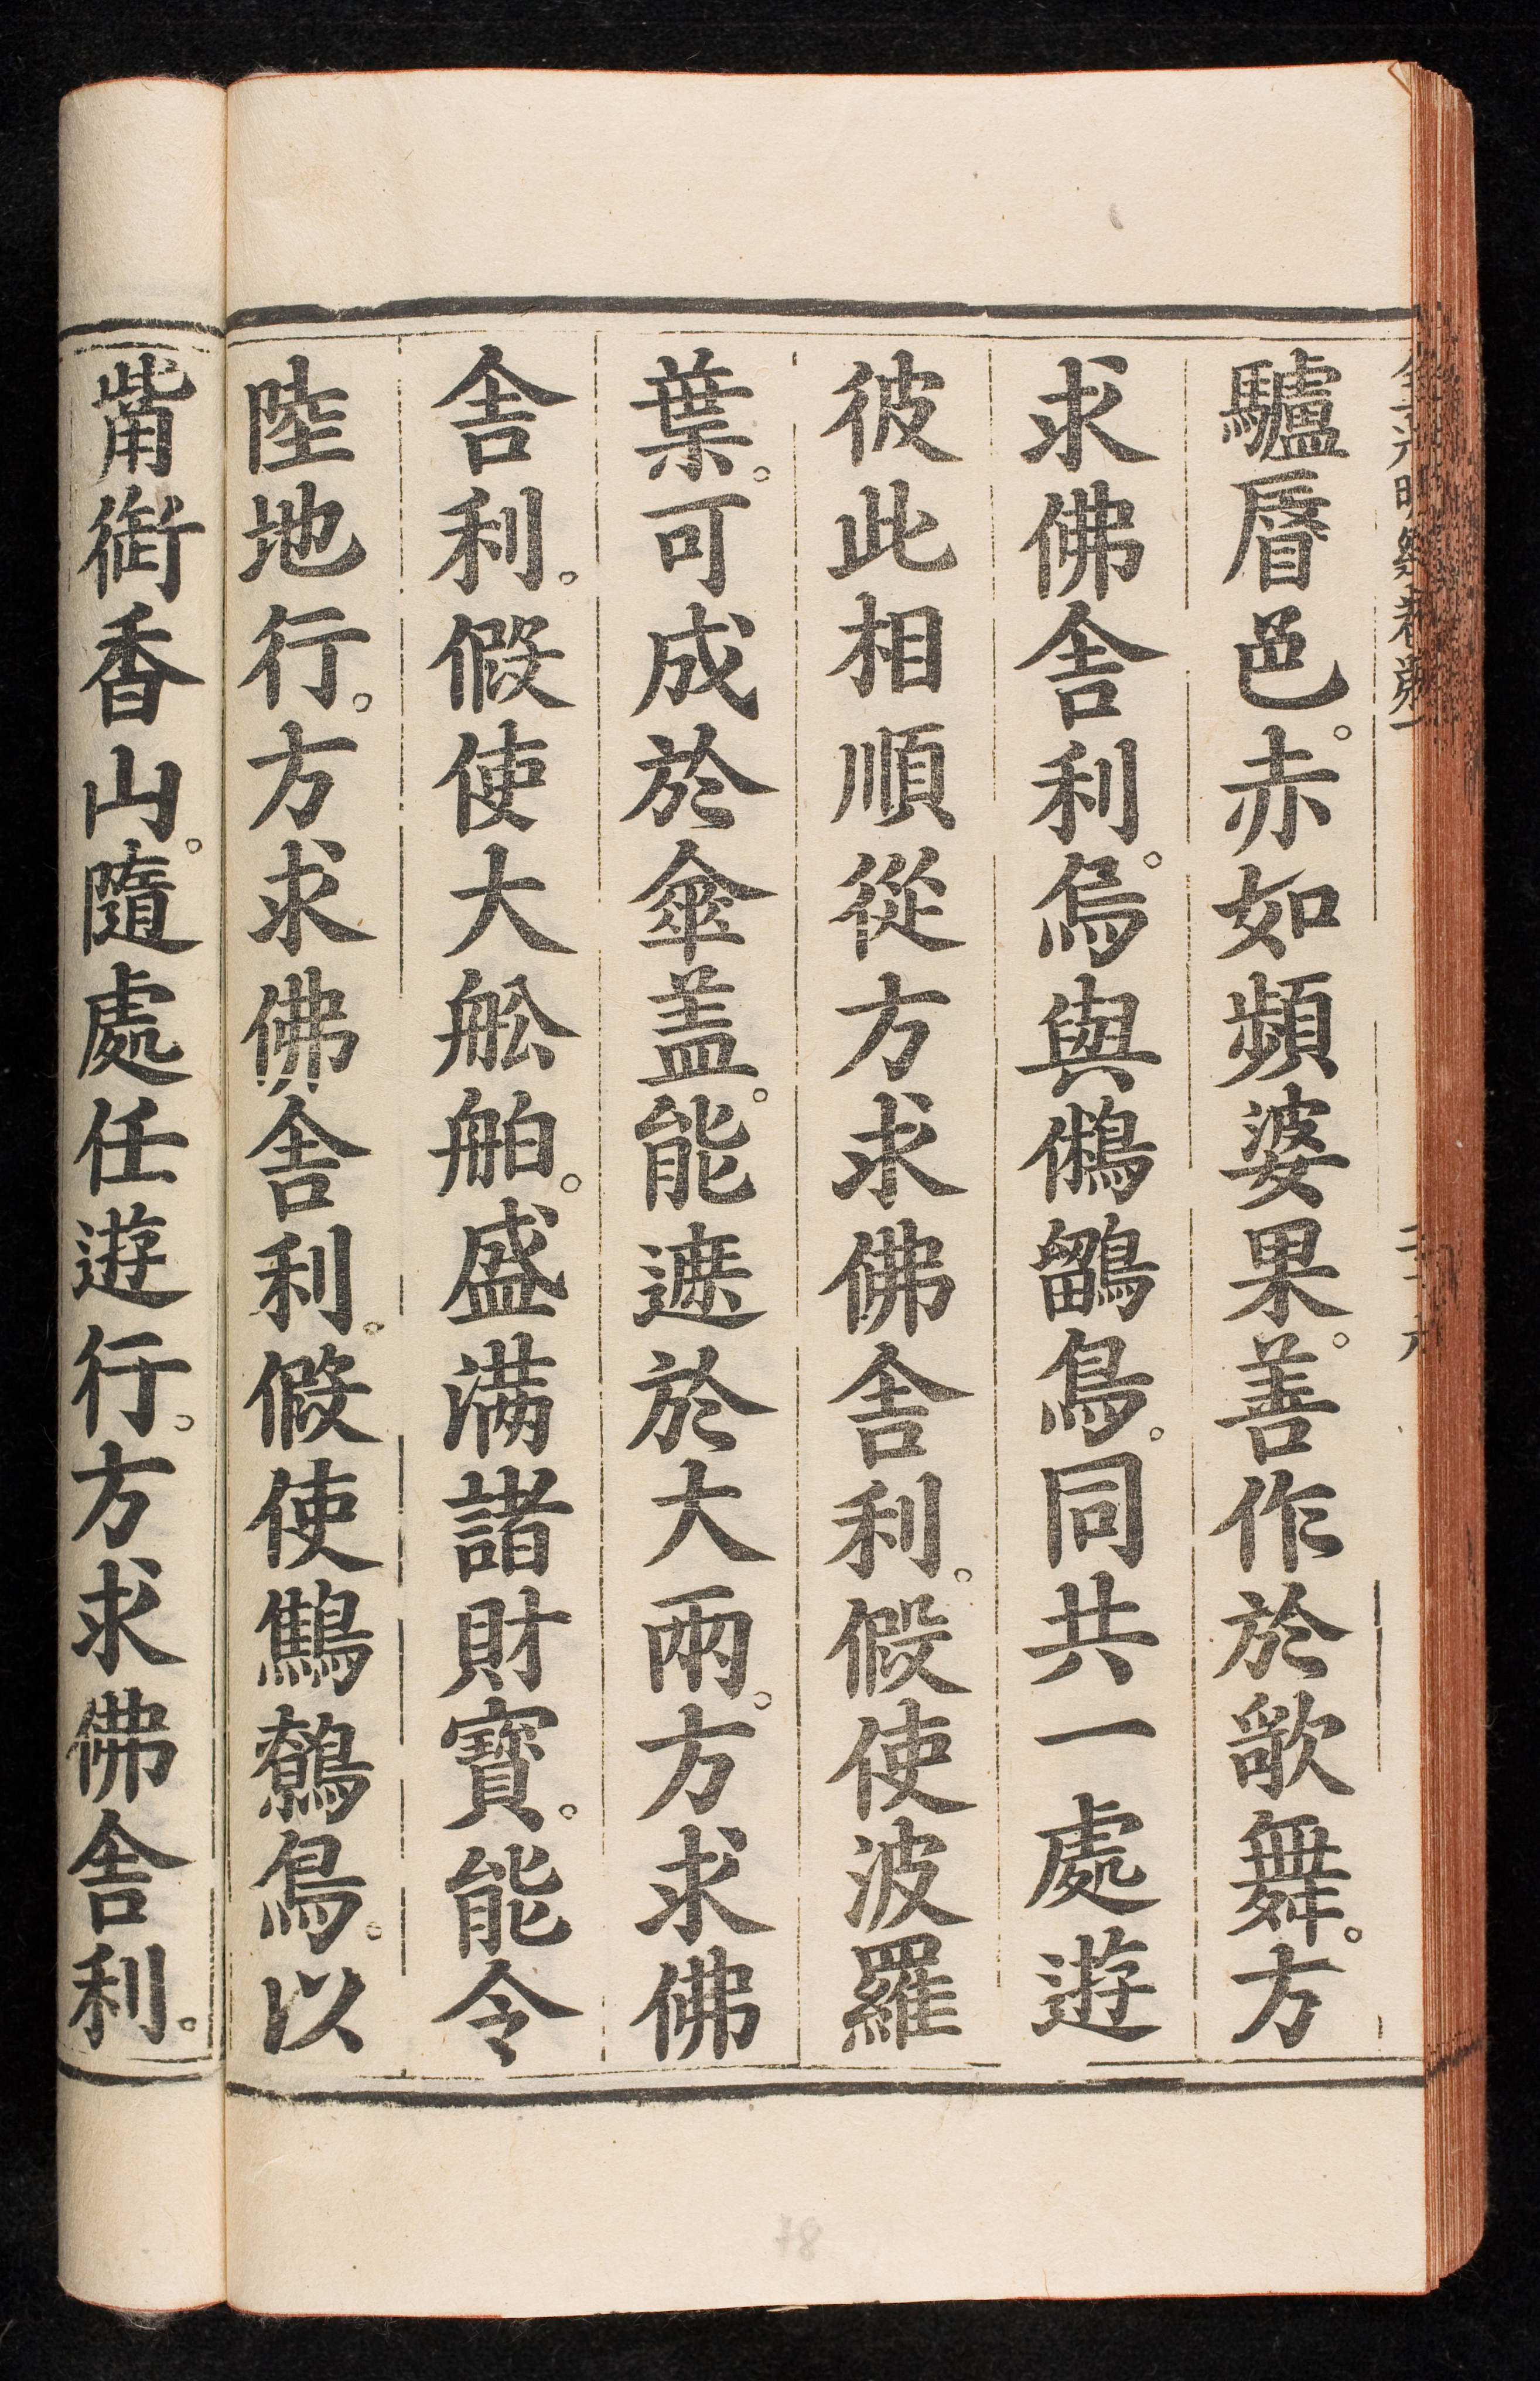 驢脣邑。赤如頻婆果。善作於歌舞。方
求佛舎利。烏與鵂鶹鳥。同共一處遊
彼此相順從方求佛舎利。假使波羅
葉。可成於傘盖。能遮於大雨。方求佛
舎利。假使大舩舶。盛滿諸財寶。能令
陸地行。方求佛舎利。假使鷦鷯鳥。以
觜銜香山。隨處任遊行。方求佛舎利。